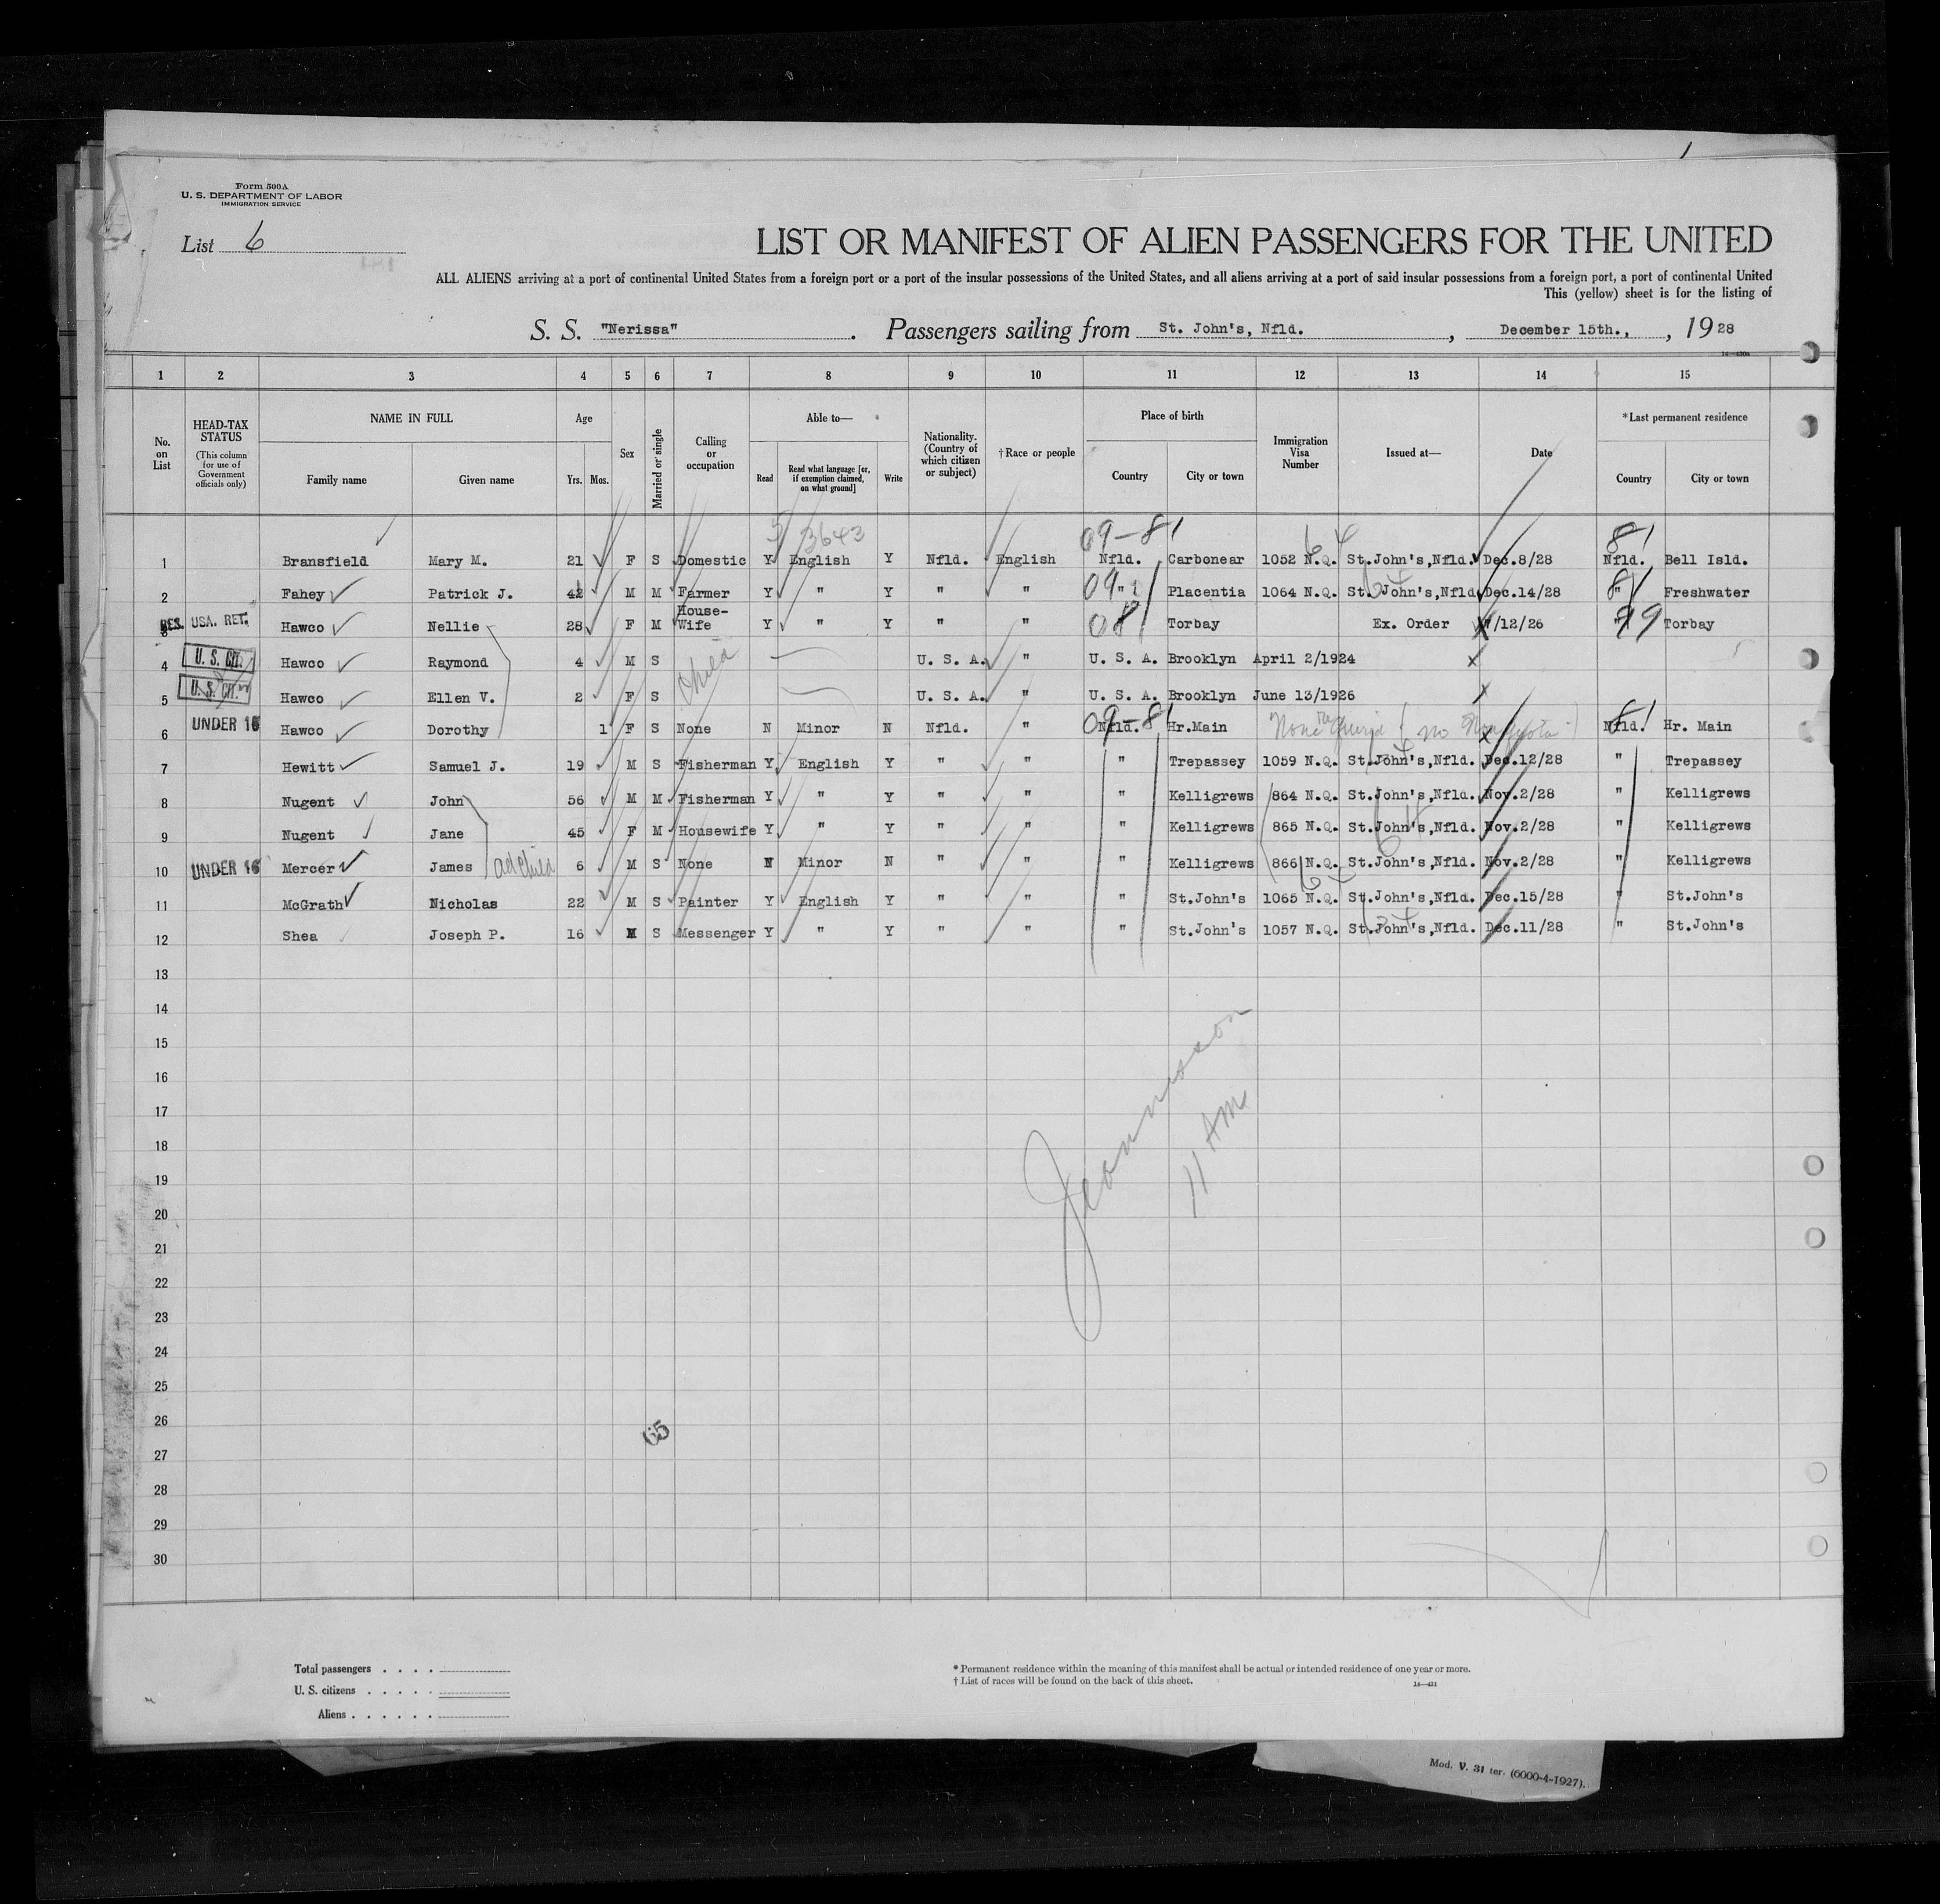 1
Form 500A
U. S. DEPARTMENT OF LABOR
IMMIGRATION SERVICE
List 6
LIST OR MANIFEST OF ALIEN PASSENGERS FOR THE UNITED
ALL ALIENS arriving at a port of continental United States from a foreign port or a port of the insular possessions of the United States, and all aliens arriving at a port of said insular possessions from a foreign port, a port of continental United
This (yellow) sheet is for the listing of
S. S. "Nerissa". Passengers sailing from St. John's, Nfld., December 15th., , 1928
1 2 3 4 5 6 7 8 9 10 11 12 13 14 15
No. on List
HEAD-TAX STATUS (This column for use of Government officials only)
NAME IN FULL Family name Given name
Age Yrs. Mos.
Sex
Married or single
Calling or occupation
Able to— Read Read what language [or, if exemption claimed, on what ground] Write
Nationality. (Country of which citizen or subject)
†Race or people
Place of birth Country City or town
Immigration Visa Number
Issued at—
Date
*Last permanent residence Country City or town
5 3643 09-81 64 81
1 Bransfield Mary M. 21 F S Domestic Y English Y Nfld. English Nfld. Carbonear 1052 N.Q. St.John's,Nfld. Dec.8/28 Nfld. Bell Isld.
2 Fahey Patrick J. 42 M M Farmer Y " Y " " " Placentia 1064 N.Q. St.John's,Nfld. Dec.14/28 " Freshwater
3 RES. USA. RET. Hawco Nellie 28 F M House-Wife Y " Y " " 081 Torbay Ex. Order /12/26 " 99 Torbay
4 U. S. CIT. Hawco Raymond 4 M S Child U. S. A. " U. S. A. Brooklyn April 2/1924
5 U. S. CIT. Hawco Ellen V. 2 F S U. S. A. " U. S. A. Brooklyn June 13/1926
6 UNDER 16 Hawco Dorothy 1 F S None N Minor N Nfld. " 09-81 Nfld. Hr.Main None required (no Nonquota) 81 Nfld. Hr. Main
7 Hewitt Samuel J. 19 M S Fisherman Y English Y " " " Trepassey 1059 N.Q. St.John's,Nfld. Dec.12/28 " Trepassey
8 Nugent John 56 M M Fisherman Y " Y " " " Kelligrews 864 N.Q. St.John's,Nfld. Nov.2/28 " Kelligrews
9 Nugent Jane 45 F M Housewife Y " Y " " " Kelligrews 865 N.Q. St.John's,Nfld. Nov.2/28 " Kelligrews
10 UNDER 16 Mercer James ad child 6 M S None N Minor N " " " Kelligrews 866 N.Q. St.John's,Nfld. Nov.2/28 " Kelligrews
11 McGrath Nicholas 22 M S Painter Y English Y " " " St.John's 1065 N.Q. St.John's,Nfld. Dec.15/28 " St.John's
12 Shea Joseph P. 16 M S Messenger Y " Y " " " St.John's 1057 N.Q. St.John's,Nfld. Dec.11/28 " St.John's
13
14
15
16
17
18
19
20
21
22
23
24
25
26
27
28
29
30
11 AM
65
Total passengers . . . .
U. S. citizens . . . . .
Aliens . . . . . .
* Permanent residence within the meaning of this manifest shall be actual or intended residence of one year or more.
† List of races will be found on the back of this sheet.
14—431
Mod. V. 31 ter. (6000-4-1927).